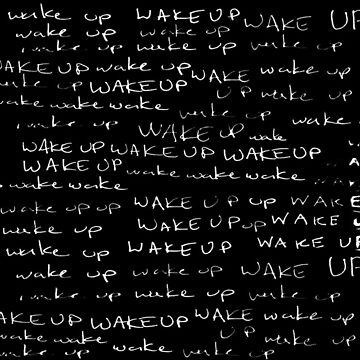 wake up WAKE UP WAKE UP
wake up wake up
wake up wake up wake up
WAKE UP WAKE UP WAKE wake up
wake up WAKEUP UP wake up
wake wake wake wake up
wake up wake
WAKE UP wake
WAKE UP WAKE UP WAKEUP
WAKE UP wake wake
wake wake
wake up up WAKE UP UP WAKE
wake up WAKE UP up WAKE
wake up WAKEUP WAKE UP
wake up wake up WAKE UP
wake up wake up wake up
WAKE UP WAKEUP WAKE wake up
wake up UP wake up